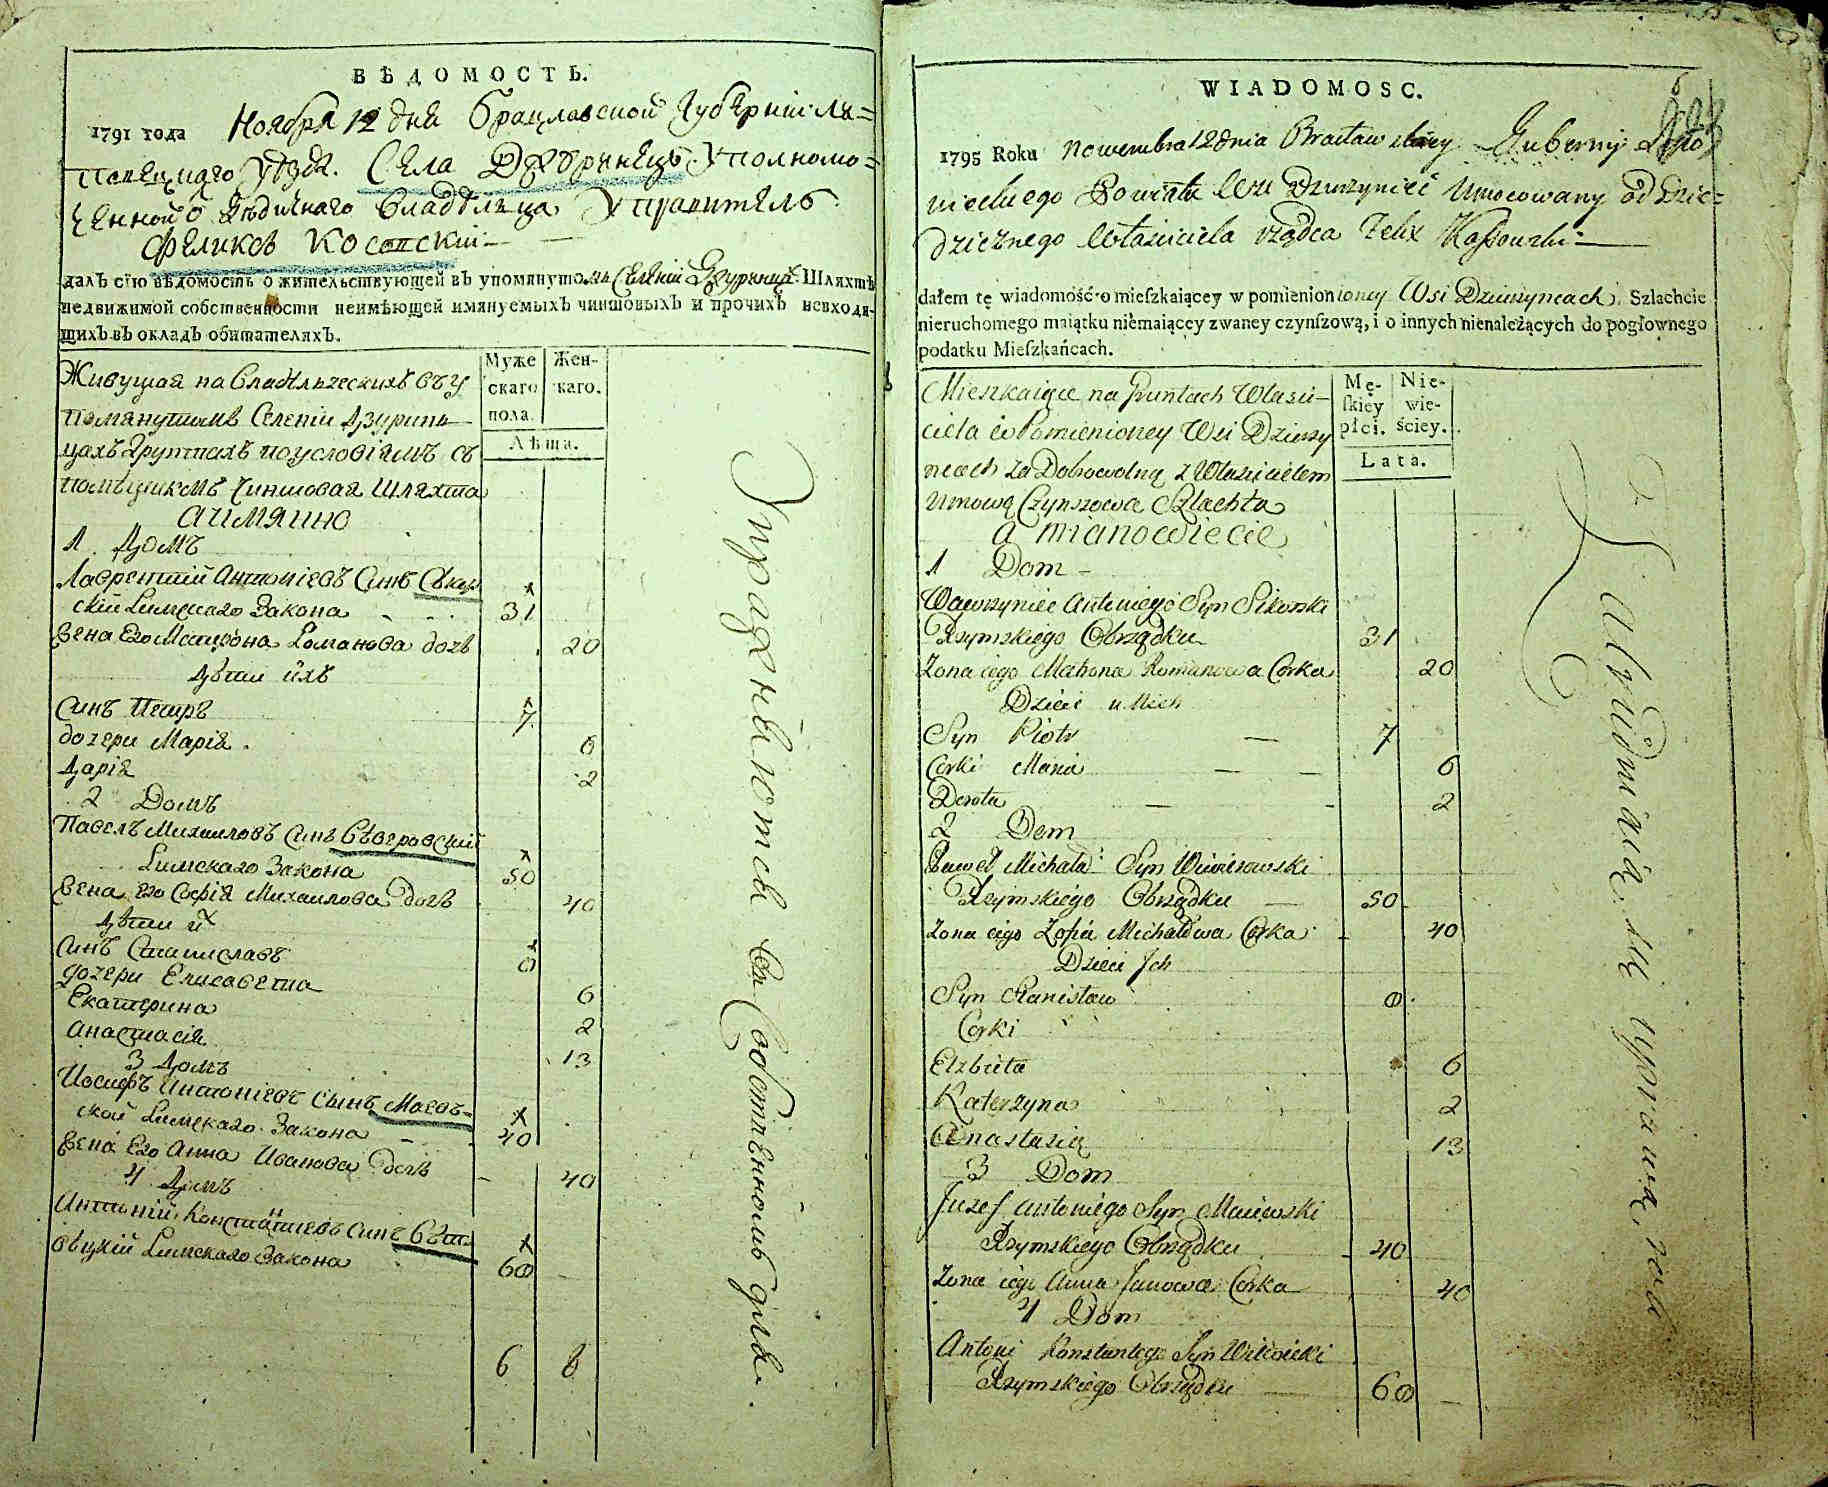 ВѢДОМОСТЬ.
1791 года Ноября 12 дня Брацлавской Губерніи Ли=
пецкаго Уѣзда. Села Уполномо=
ченной Ѿ Дѣдичнаго Владѣльца Управитель
Феликсъ Косовскій
далъ сїю вѣдомость о жительствующей въ упомянутомъ Селеніи Шляхтѣ
недвижимой собственности неимѣющей имянуемыхъ чиншовыхъ и прочихъ невходя-
щихъ въ окладъ обитателяхъ.
Муже скаго пола. Жен- каго.
Лѣта.
Живущая на Владѣльческихъ въ у
помянутомъ Селеніи Дзурин
цахъ Грунтахъ по условіямъ съ
помѣщикомъ Чиншовая Шляхта
а имянно
1 Домъ
Лаврентій Антоніевъ Синъ Сѣкор
скій Римскаго Закона 31
Жена Его Матрона Романова дочь 20
Дѣти ихъ
Синъ Петръ 7
дочери Марія 6
Дарія 2
2 Домъ
Павелъ Михаиловъ Синъ Сѣверовскій
Римскаго Закона 50
Жена Его Софія Михаилова дочь 40
Дѣти их
Синъ Станиславъ 0
дочери Елисавета 6
Екатерина 2
Анастасія 13
3 Домъ
Иосифъ Антоніевъ Сынъ Маев-
ской Римскаго Закона 40
Жена Его Анна Иванова дочь 40
4 Домъ
Антоній Константиевъ Синъ Вѣт
вѣцкій Римскаго Закона 60
6 8
Упражняются въ Собственномъ для
WIADOMOSC.
1795 Roku Nowembra 12 dnia Bracławskiey Gubernij Lipo
wieckiego Powiatu Wsi Dzuryniec Umocowany od Dzie=
dzicznego Właściciela rządca Felix Kossowski
dałem tę wiadomość o mieſzkaiącey w pomienioney Wsi Dzuryncach Szlachcie
nieruchomego maiątku niemaiącey zwaney czynſzową, i o innych nienależących do pogłownego
podatku Mieſzkańcach.
Mę- ſkiey płci. Nie- wie- ściey.
Lata.
Mieszkaiące na Gruntach Własci-
ciela w Pomienioney Wsi Dzury
ncach za Dobrowolną z Włascicielem
Umową Czynszowa Szlachta
a mianowiecie
1 Dom
Wawrzyniec Antoniego Syn Sikorski
Rzymskiego Obrządku 31
Zona iego Matrona Romanowa Corka 20
Dzieci u Nich
Syn Piotr 7
Corki Maria 6
Dorota 2
2 Dom
Paweł Michała Syn
Rzymskiego Obrządku 50
Zona iego Zofia Michałowa Corka 40
Dzieci Ich
Syn Stanisław 0
Corki
Elzbieta 6
Katerzyna 2
Anastazią 13
3 Dom
Juzef Antoniego Syn Maiewski
Rzymskiego Obrządku 40
Zona iego Anna Janowa Corka 40
4 Dom
Antoni Konstantego Syn Witwicki
Rzymskiego Obrządku 60
Zatrudniaią się uprawą roli